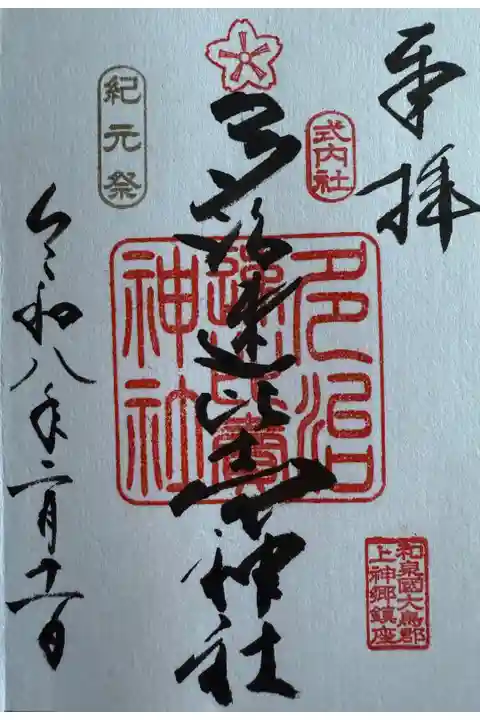 奉拝
式内社
多治速比売神社
多治
速比賣
神社
紀元祭
令和八年二月十一日
和泉國大鳥郡
上神郷鎮座